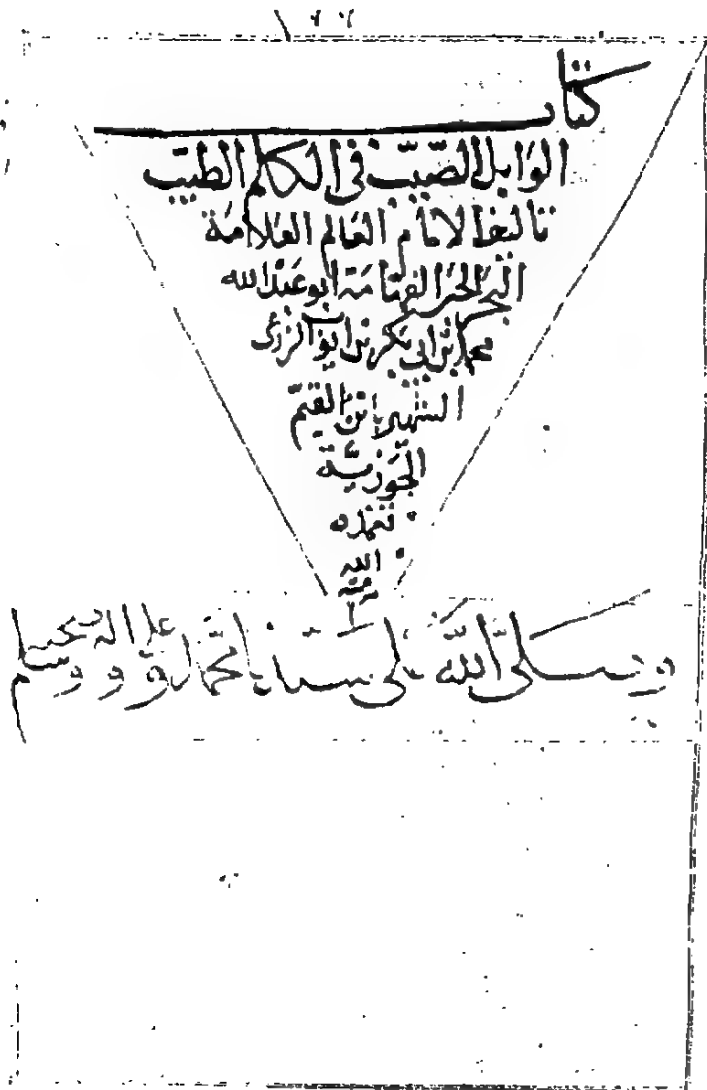 كتاب
الوابل الصيب في الكلم الطيب
تاليف الامام العالم العلامة
البحر الحبر الفهامة ابو عبد الله
محمد بن ابي بكر بن ايوب الزرعى
الشهير بابن القيم
الجوزية
تغمده
الله
وصلى الله على سيدنا محمد و على اله وصحبه وسلم